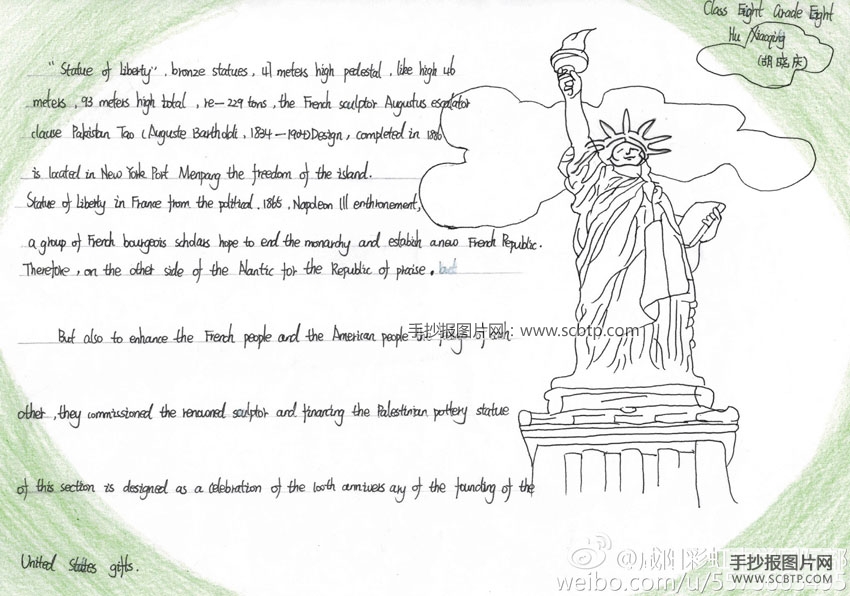 Class Eight Grade Eight
Hu Xiaoqing
(胡晓庆)
"Statue of Liberty". bronze statues, 47 meters high pedestal, like high 46
meters, 93 meters high total, re-229 tons, the French sculptor Augustus escalator
clause Pakistan Tao (Auguste Bartholdi, 1834-1904) Design, completed in 1886
is located in New York Port Menpang the freedom of the island.
Statue of Liberty in France from the political. 1865, Napoleon III enthronement,
a group of French bourgeois scholars hope to end the monarchy and establish a new French Republic.
Therefore, on the other side of the Atlantic for the Republic of praise. but
But also to enhance the French people and the American people
手抄报图片网:www.scbtp.com
other, they commissioned the renowned sculptor and financing the Palestinian pottery statue
of this section is designed as a celebration of the 100th annivers ary of the founding of the
United States gifts.
手抄报图片网
WWW.SCBTP.COM